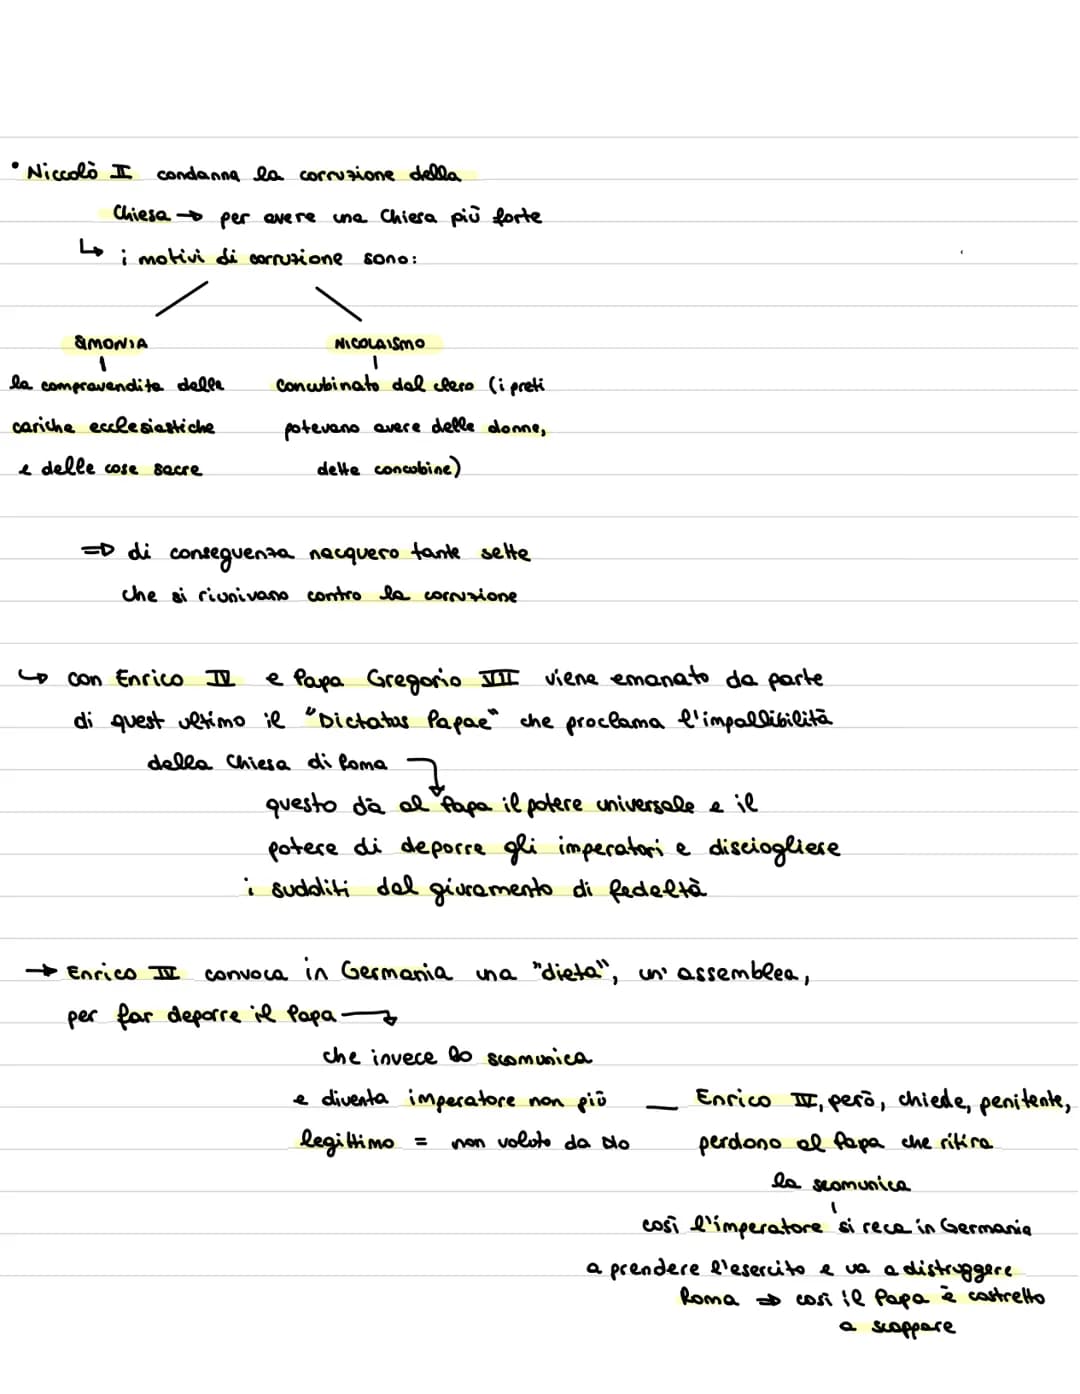 • Niccolò II condanna la corruzione della
Chiesa → per avere una Chiesa più forte
↳ i motivi di corruzione sono:
SIMONIA
NICOLAISMO
la compravendita delle
cariche ecclesiastiche
e delle cose sacre
concubinato dal clero (i preti
potevano avere delle donne,
dette concubine)
⇒ di conseguenza nacquero tante sette
che si riunivano contro la corruzione
↳ con Enrico IV e Papa Gregorio VII viene emanato da parte
di quest ultimo il "Dictatus Papae" che proclama l'impallibilità
della Chiesa di Roma
questo dà al Papa il potere universale e il
potere di deporre gli imperatori e disciogliere
i sudditi dal giuramento di fedeltà
→ Enrico IV convoca in Germania una "dieta", un' assemblea,
per far deporre il Papa →
che invece lo scomunica
e diventa imperatore non più
legittimo = non voluto da Dio
— Enrico IV, però, chiede, penitente,
perdono al Papa che ritira
la scomunica
così l'imperatore si reca in Germania
a prendere l'esercito e va a distruggere
Roma ⇒ così il Papa è costretto
a scappare